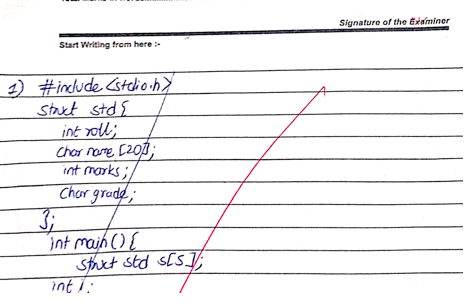 Signature of the Examiner
Start Writing from here :-
1) #include <stdio.h>
struct std {
int roll;
char name [20];
int marks;
char grade;
};
int main () {
struct std s[5];
int i;